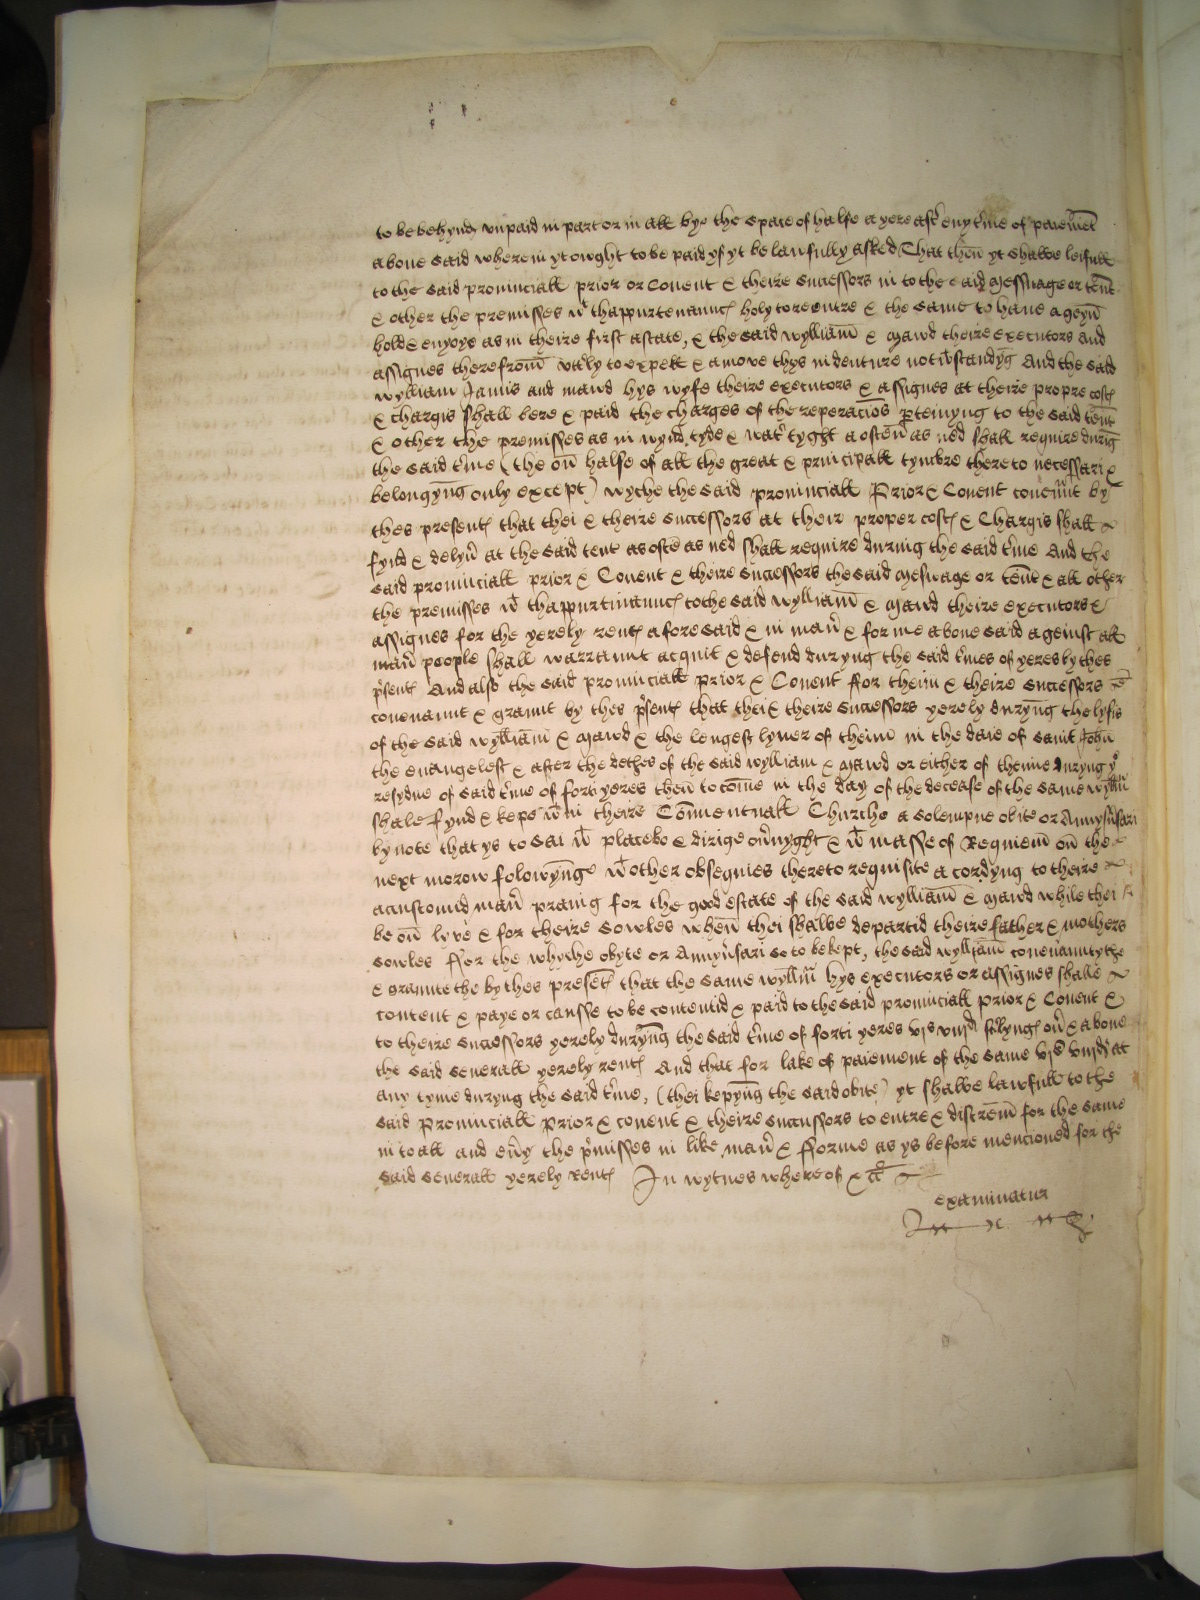 to be behynd, unpaid in part or in all by the space of halfe a yere aft' eny t'me of paiemēt
aboue said wherein yt owght to be paid yf yt be lawfully asked That then̄ yt shalbe leifull
to the said prouinciall prior or Couent & theire successors in to the said Messuage or ten̄t
& other the premisses wt thappurtenaunc' holy to reentre & the same to haue ageyn̄
hold & enyoye as in theire first astate, & the said wylliam̄ & Mawd theire executors and
assignes therefrom̄ vtt'ly to expell & amove thys indenture notwtstandyn̄g And the said
wylliam Jamis and mawd hys wyfe theire executors & assignes at theire propre cost'
& chargis shall bere & paid the charges of the reperacion̄s p'teinyng to the said ten̄t
& other the premisses as in wynd, tyde & wat' tyght as often̄ as ned shall require durin̄g
the said t'me (the on̄ halfe of all the great & principall tymbre thereto necessari &
belongyn̄g only except) wyche the said prouinciall Prior & Couent couen̄nt by
thes present' that thei & theire successors at their proper cost' & Chargis shall
fynd & delyu' at the said tent as ofte as ned shall require during the said t'me And the
said prouinciall prior & Couent & theire successors the said Mesuage or ten̄t & all other
the premisses wt thappurtinaunc' to the said wylliam̄ & Mawd theire executors &
assignes for the yerely rent' aforesaid & in man' & forme aboue said ageinst all
man' people shall warraunt acquit & defend duryng the said t'mes of yeres by thes
p'sent' And also the said prouinciall prior & Couent ffor theim & theire successors
couenaunt & graunt by thes p'sent' that thei & theire successors yerely duryn̄g the lyfis
of the said wylliam̄ & Mawd & the lengest lyuer of theim in the daie of saint John̄
the euangelest & after the dethes of the said wylliam & Mawd or either of theime duryng ye
resydue of said t'me of forti yeres then̄ to com̄e in the day of the decease of the same wyll'm
shale fynd & kepe wtin theire Con̄uentuall Churche a solempne obite or Annyu'sari
by note that ys to sai wt placebo & dirige ou'nyght & wt masse of Requiem̄ on̄ the
next morow folowyn̄g wt other obsequies thereto requisite acordyng to theire
acustomid man' praing for the good estate of the said wylliam̄ & Mawd while thei
be on̄ lyve & for theire sowles when̄ thei shalbe departid theire father & mothers
sowles ffor the whyche obyte or Annyu'sari so to be kept, the said wylliam̄ couen̄auntythe
& grauntethe by thes presēt' that the same wyll'm hys executors or assignes shalle
content & paye or causse to be contentid & paid to the said prouinciall prior & Couent &
to theire successors yerely duryn̄g the said t'me of forti yeres vjs viijd st'lyng' ou' & aboue
the said seuerall yerely rent' And that for lake of paiement of the same vjs viijd at
any tyme duryng the said t'me, (thei kepyn̄g the said obite) yt shalbe lawfull to the
said Prouinciall prior & couent & theire successors to entre & distrem̄ for the same
in to all and eu'y the p'misses in like man' & fforme as ys before mencioned for the
said seuerall yerely Rent' In wytnes whereof &c
examinatur